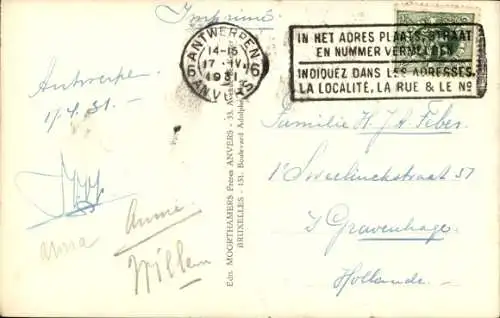 Imprimé
ANTWERPEN 6
14-15
17 · IV
1931
6 ANVERS
IN HET ADRES PLAATS, STRAAT
EN NUMMER VERMELDEN
INDIQUEZ DANS LES ADRESSES,
LA LOCALITÉ, LA RUE & LE No
Antwerpen
17.4.31.
Anna
Annie
Willem
Edn. MOORTHAMERS Frères ANVERS - 33,
BRUXELLES - 131, Boulevard Adolphe
Familie H. J. A. Feber.
1e Sweelinckstraat 57
s Gravenhage.
Hollande.